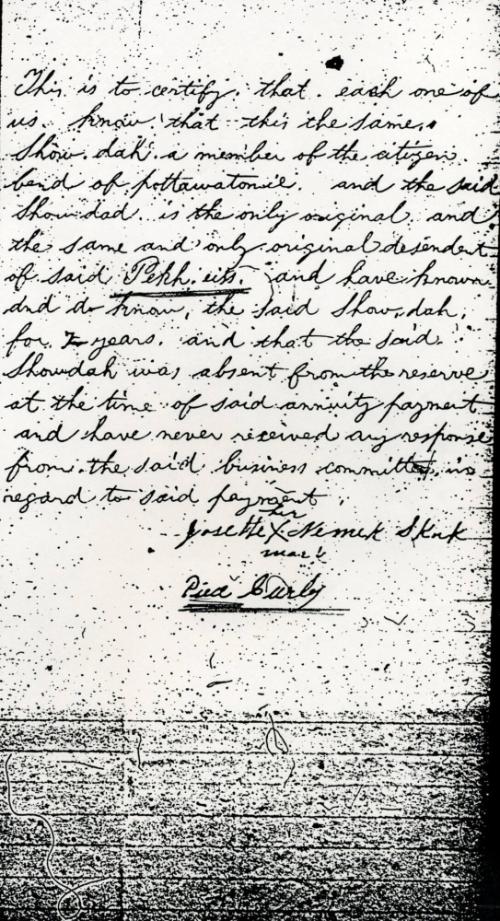 This is to certify. that. each one of
us. know that this the same.
Show. dah. a member of the citizen.
band of pottawatomie. and the said
Showdad. is the only original. and
the same and only original desendent
of said Pekh. and have known
and do know, the said Show. dah,
for years. and that the said.
Showdah was absent from the reserve
at the time of said annuity payment
and have never received any response
from. the said business committe in
regard to said payment.
her
Josette X Nemek Skuk
mark
Curly